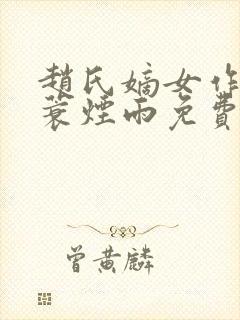 趙氏嫡女作
蓑煙雨免費
曾黃麟